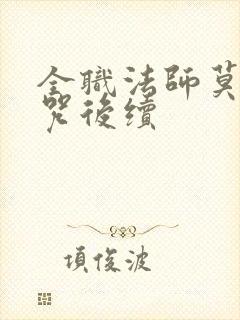 全職法師莫
咒後續
項俊波